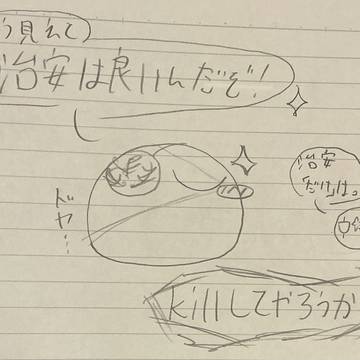 う見えて)
治安は良いんだぞ!
ドヤ…
治安
だけは。
killしてやろうか